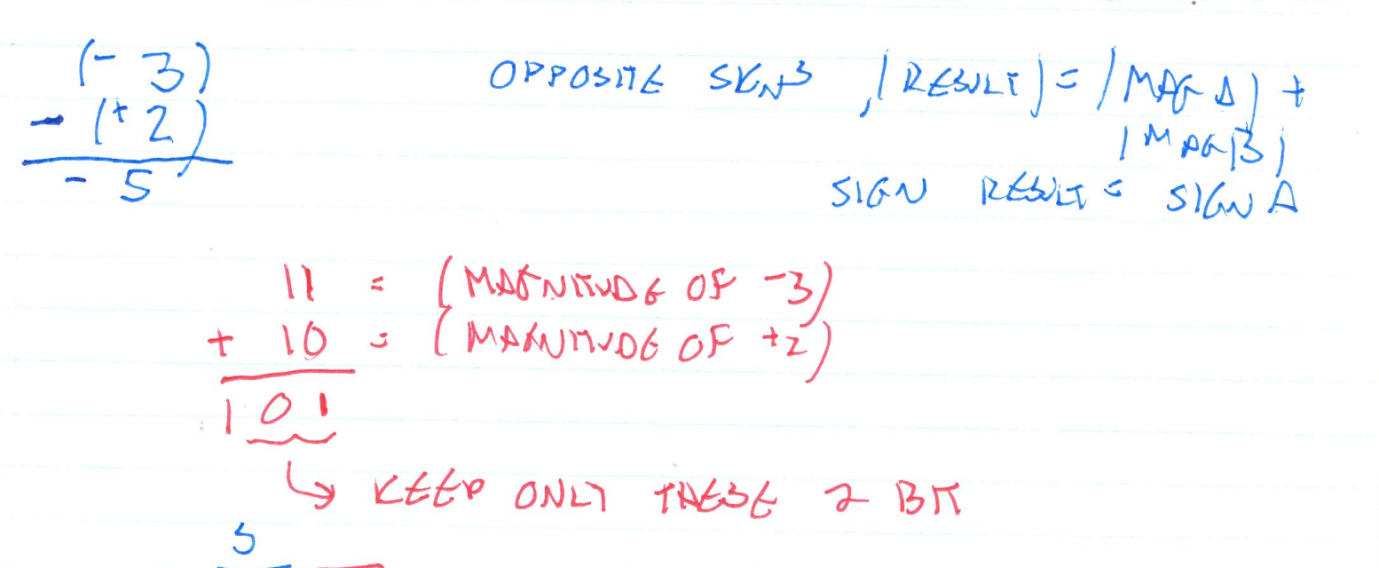 (- 3)
- (+ 2)
- 5
OPPOSITE SIGNS, |RESULT| = |MAG A| +
|MAG B|
SIGN RESULT = SIGN A
11 = (MAGNITUDE OF -3)
+ 10 = (MAGNITUDE OF +2)
101
↳ KEEP ONLY THESE 2 BIT